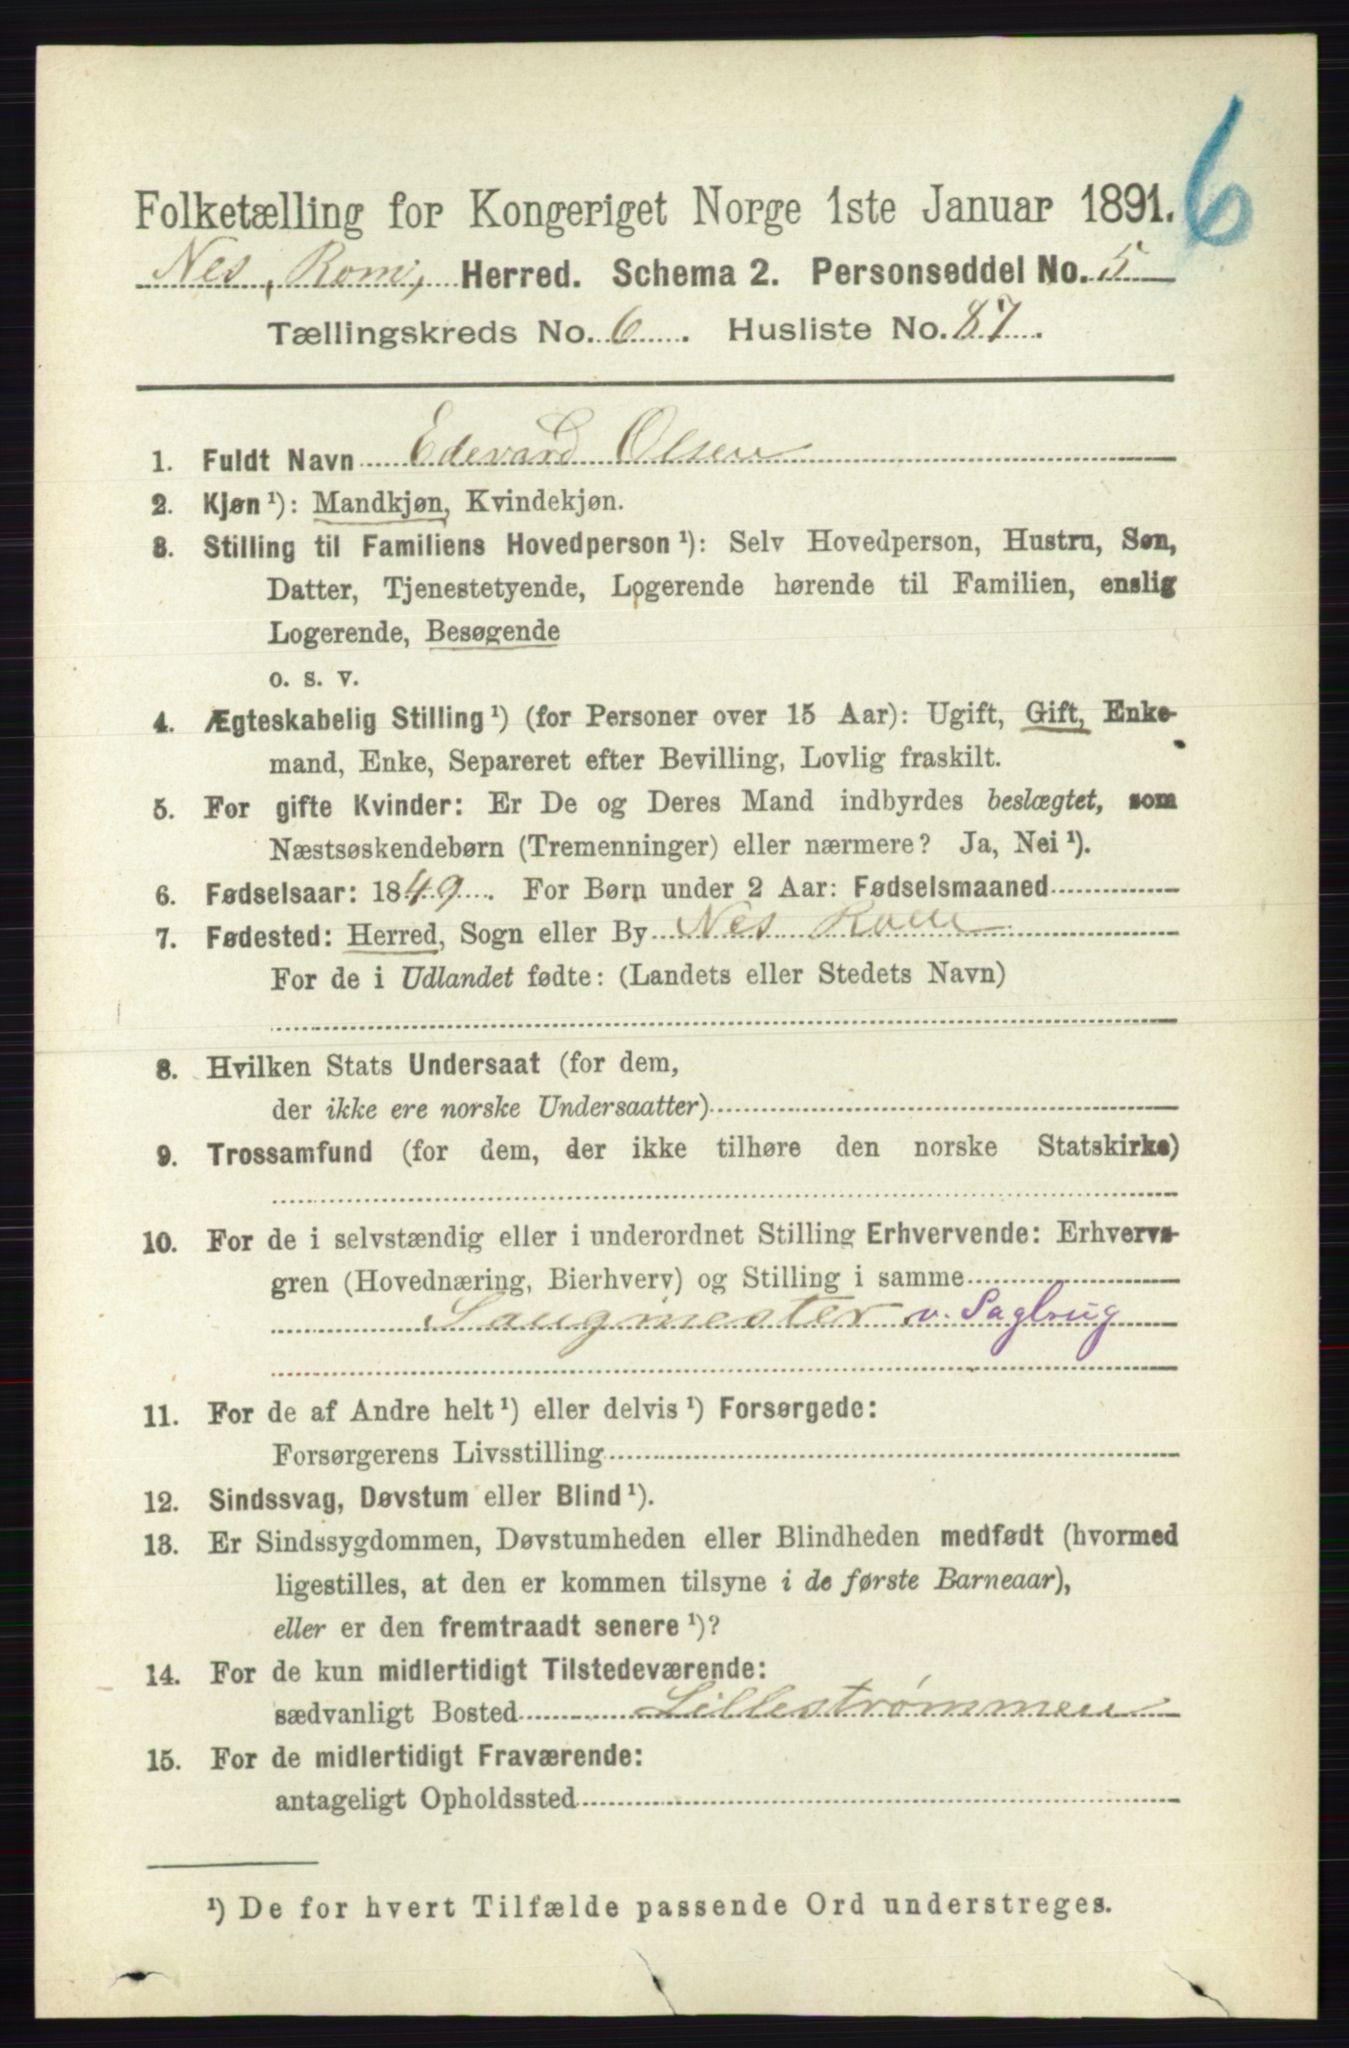 6
Folketælling for Kongeriget Norge 1ste Januar 1891.
Nes, Rom; Herred. Schema 2. Personseddel No. 5
Tællingskreds No. 6. Husliste No. 87.
1. Fuldt Navn Edevard Olsen
2. Kjøn ¹): Mandkjøn, Kvindekjøn.
3. Stilling til Familiens Hovedperson ¹): Selv Hovedperson, Hustru, Søn,
Datter, Tjenestetyende, Logerende hørende til Familien, enslig
Logerende, Besøgende
o. s. v.
4. Ægteskabelig Stilling ¹) (for Personer over 15 Aar): Ugift, Gift, Enke-
mand, Enke, Separeret efter Bevilling, Lovlig fraskilt.
5. For gifte Kvinder: Er De og Deres Mand indbyrdes beslægtet, som
Næstsøskendebørn (Tremenninger) eller nærmere? Ja, Nei ¹).
6. Fødselsaar: 1849. For Børn under 2 Aar: Fødselsmaaned
7. Fødested: Herred, Sogn eller By Nes Rom
For de i Udlandet fødte: (Landets eller Stedets Navn)
8. Hvilken Stats Undersaat (for dem,
der ikke ere norske Undersaatter)
9. Trossamfund (for dem, der ikke tilhøre den norske Statskirke)
10. For de i selvstændig eller i underordnet Stilling Erhvervende: Erhvervs-
gren (Hovednæring, Bierhverv) og Stilling i samme
Saugmester v. Sagbrug
11. For de af Andre helt ¹) eller delvis ¹) Forsørgede:
Forsørgerens Livsstilling
12. Sindssvag, Døvstum eller Blind ¹).
13. Er Sindssygdommen, Døvstumheden eller Blindheden medfødt (hvormed
ligestilles, at den er kommen tilsyne i de første Barneaar),
eller er den fremtraadt senere ¹)?
14. For de kun midlertidigt Tilstedeværende:
sædvanligt Bosted Lillestrømmen
15. For de midlertidigt Fraværende:
antageligt Opholdssted
¹) De for hvert Tilfælde passende Ord understreges.